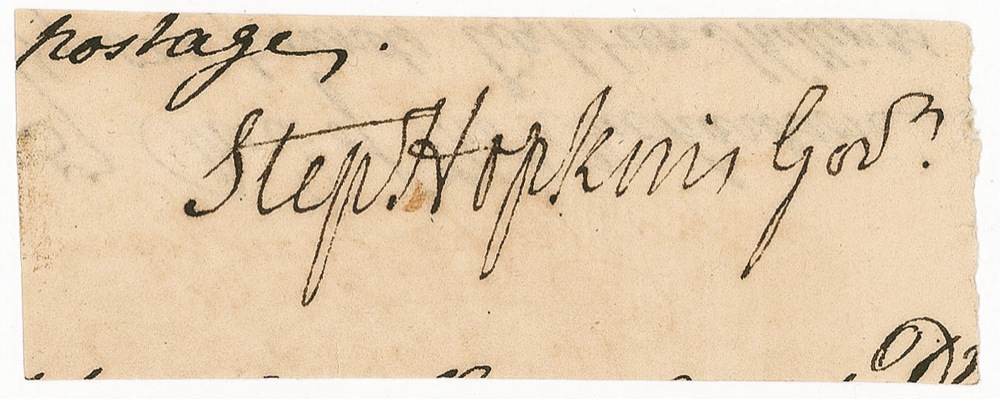 postage.
Step. Hopkins Gov.r